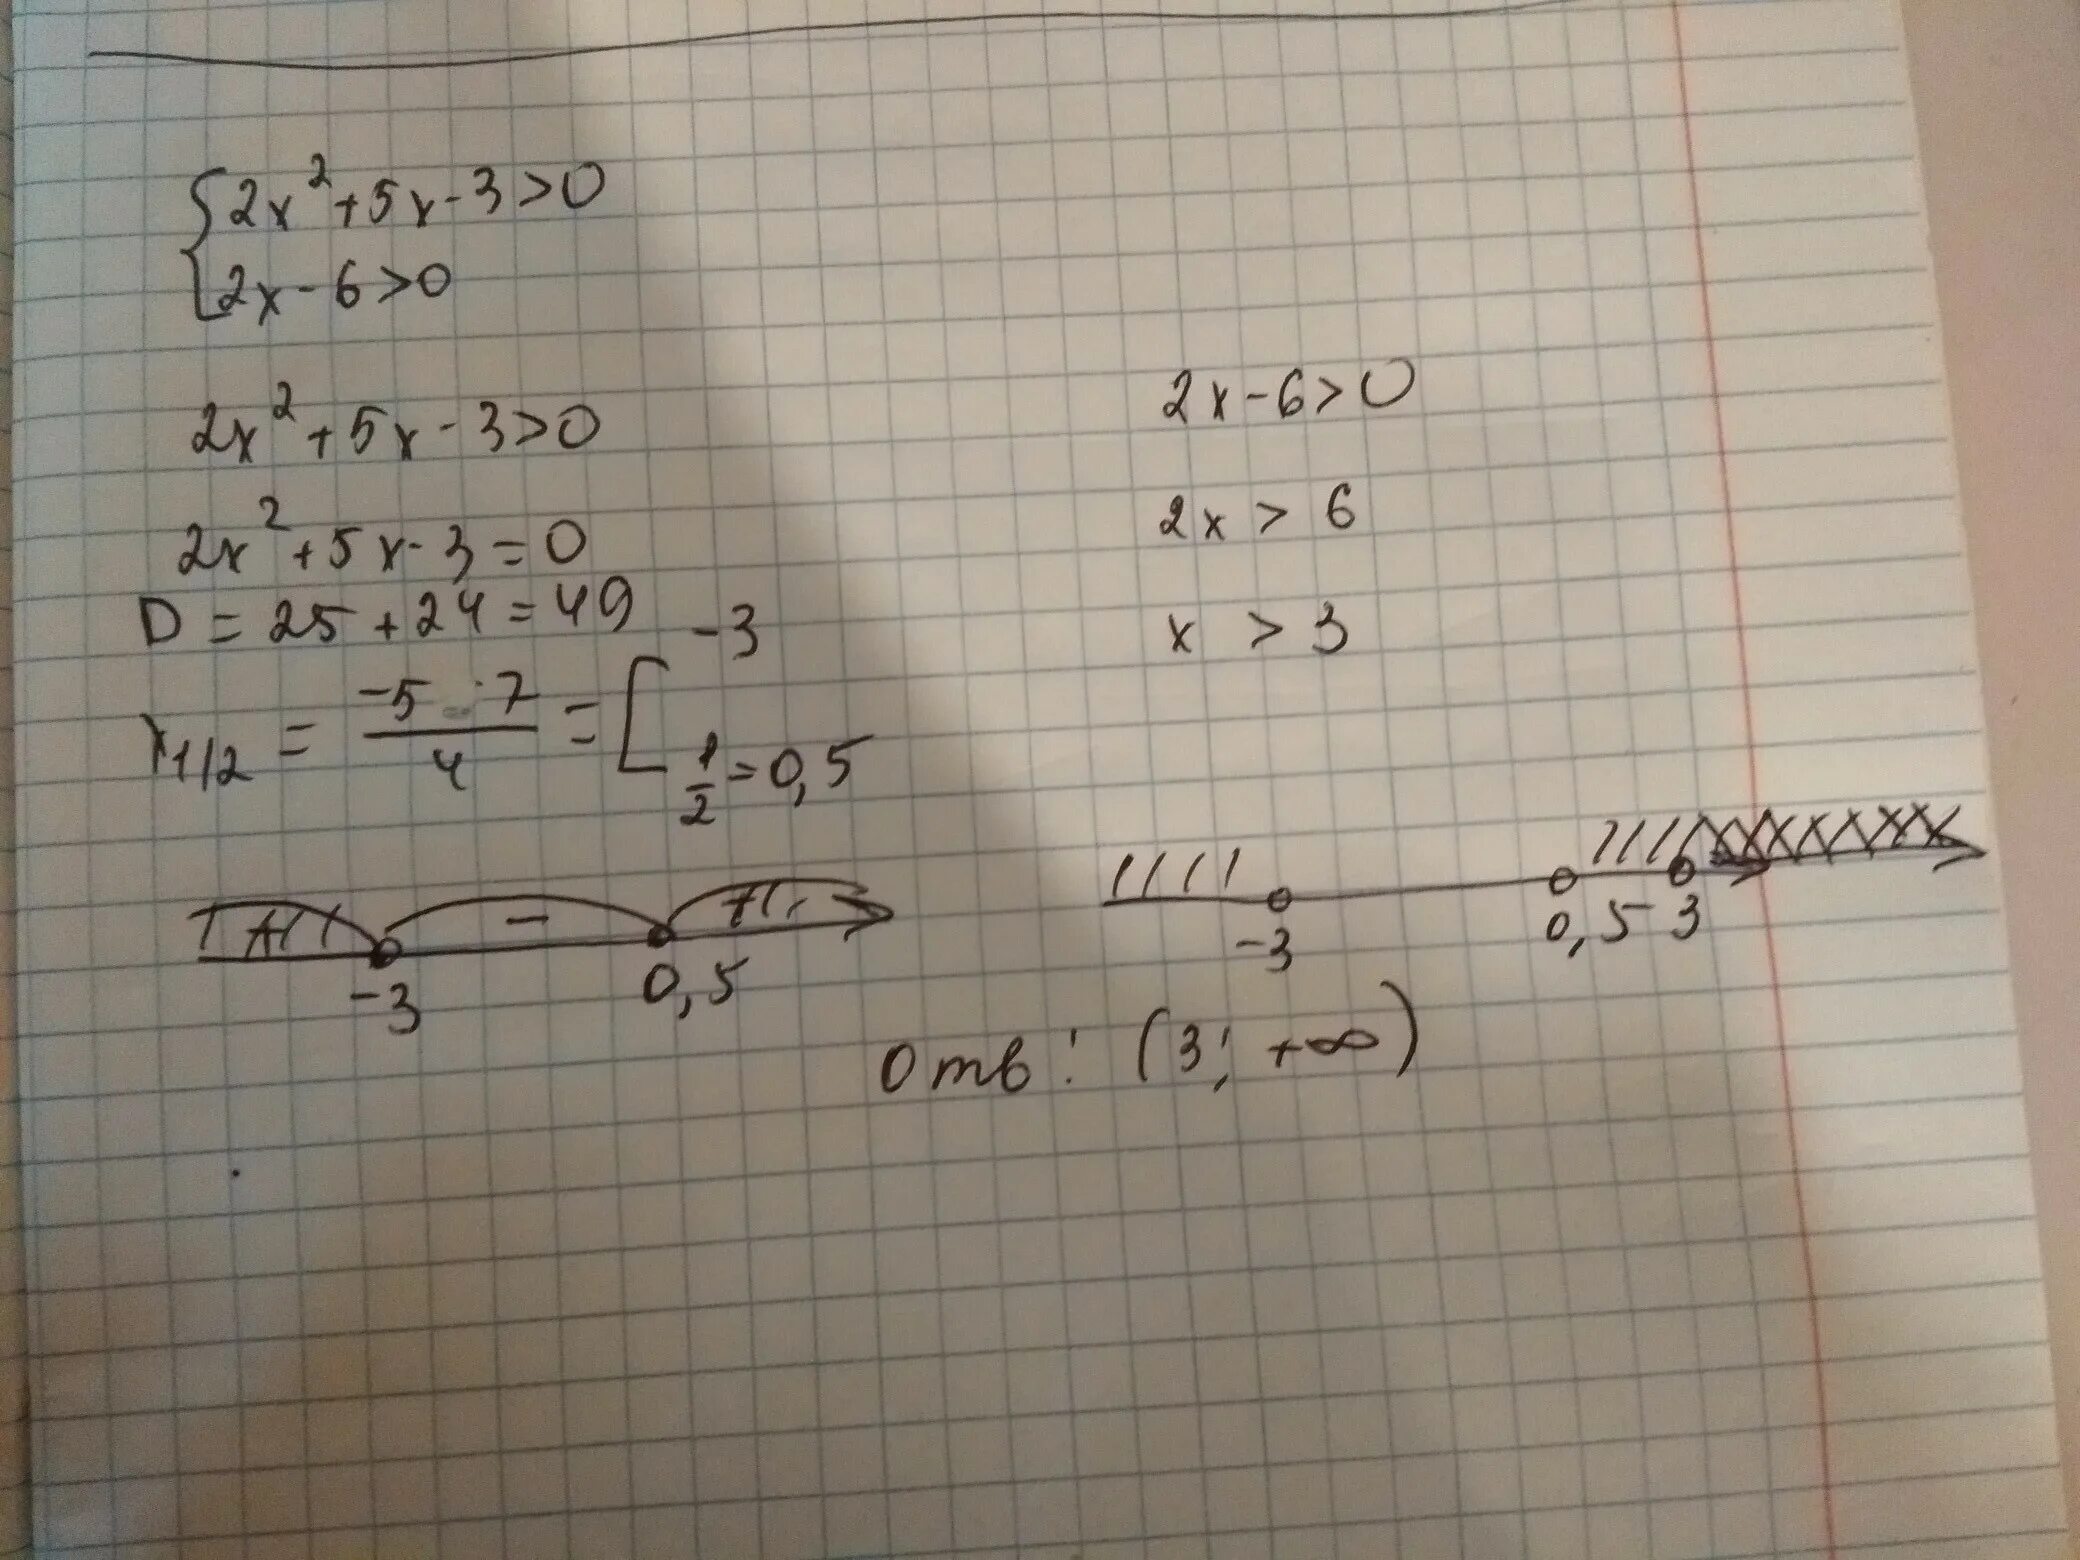 {2x²+5x-3>0
2x-6>0
2x²+5x-3>0
2x²+5x-3=0
D=25+24=49
x1/2 = (-5 7)/4 = [-3
1/2=0,5
-3 0,5
2x-6>0
2x > 6
x > 3
-3 0,5 3
Отв: (3; +∞)